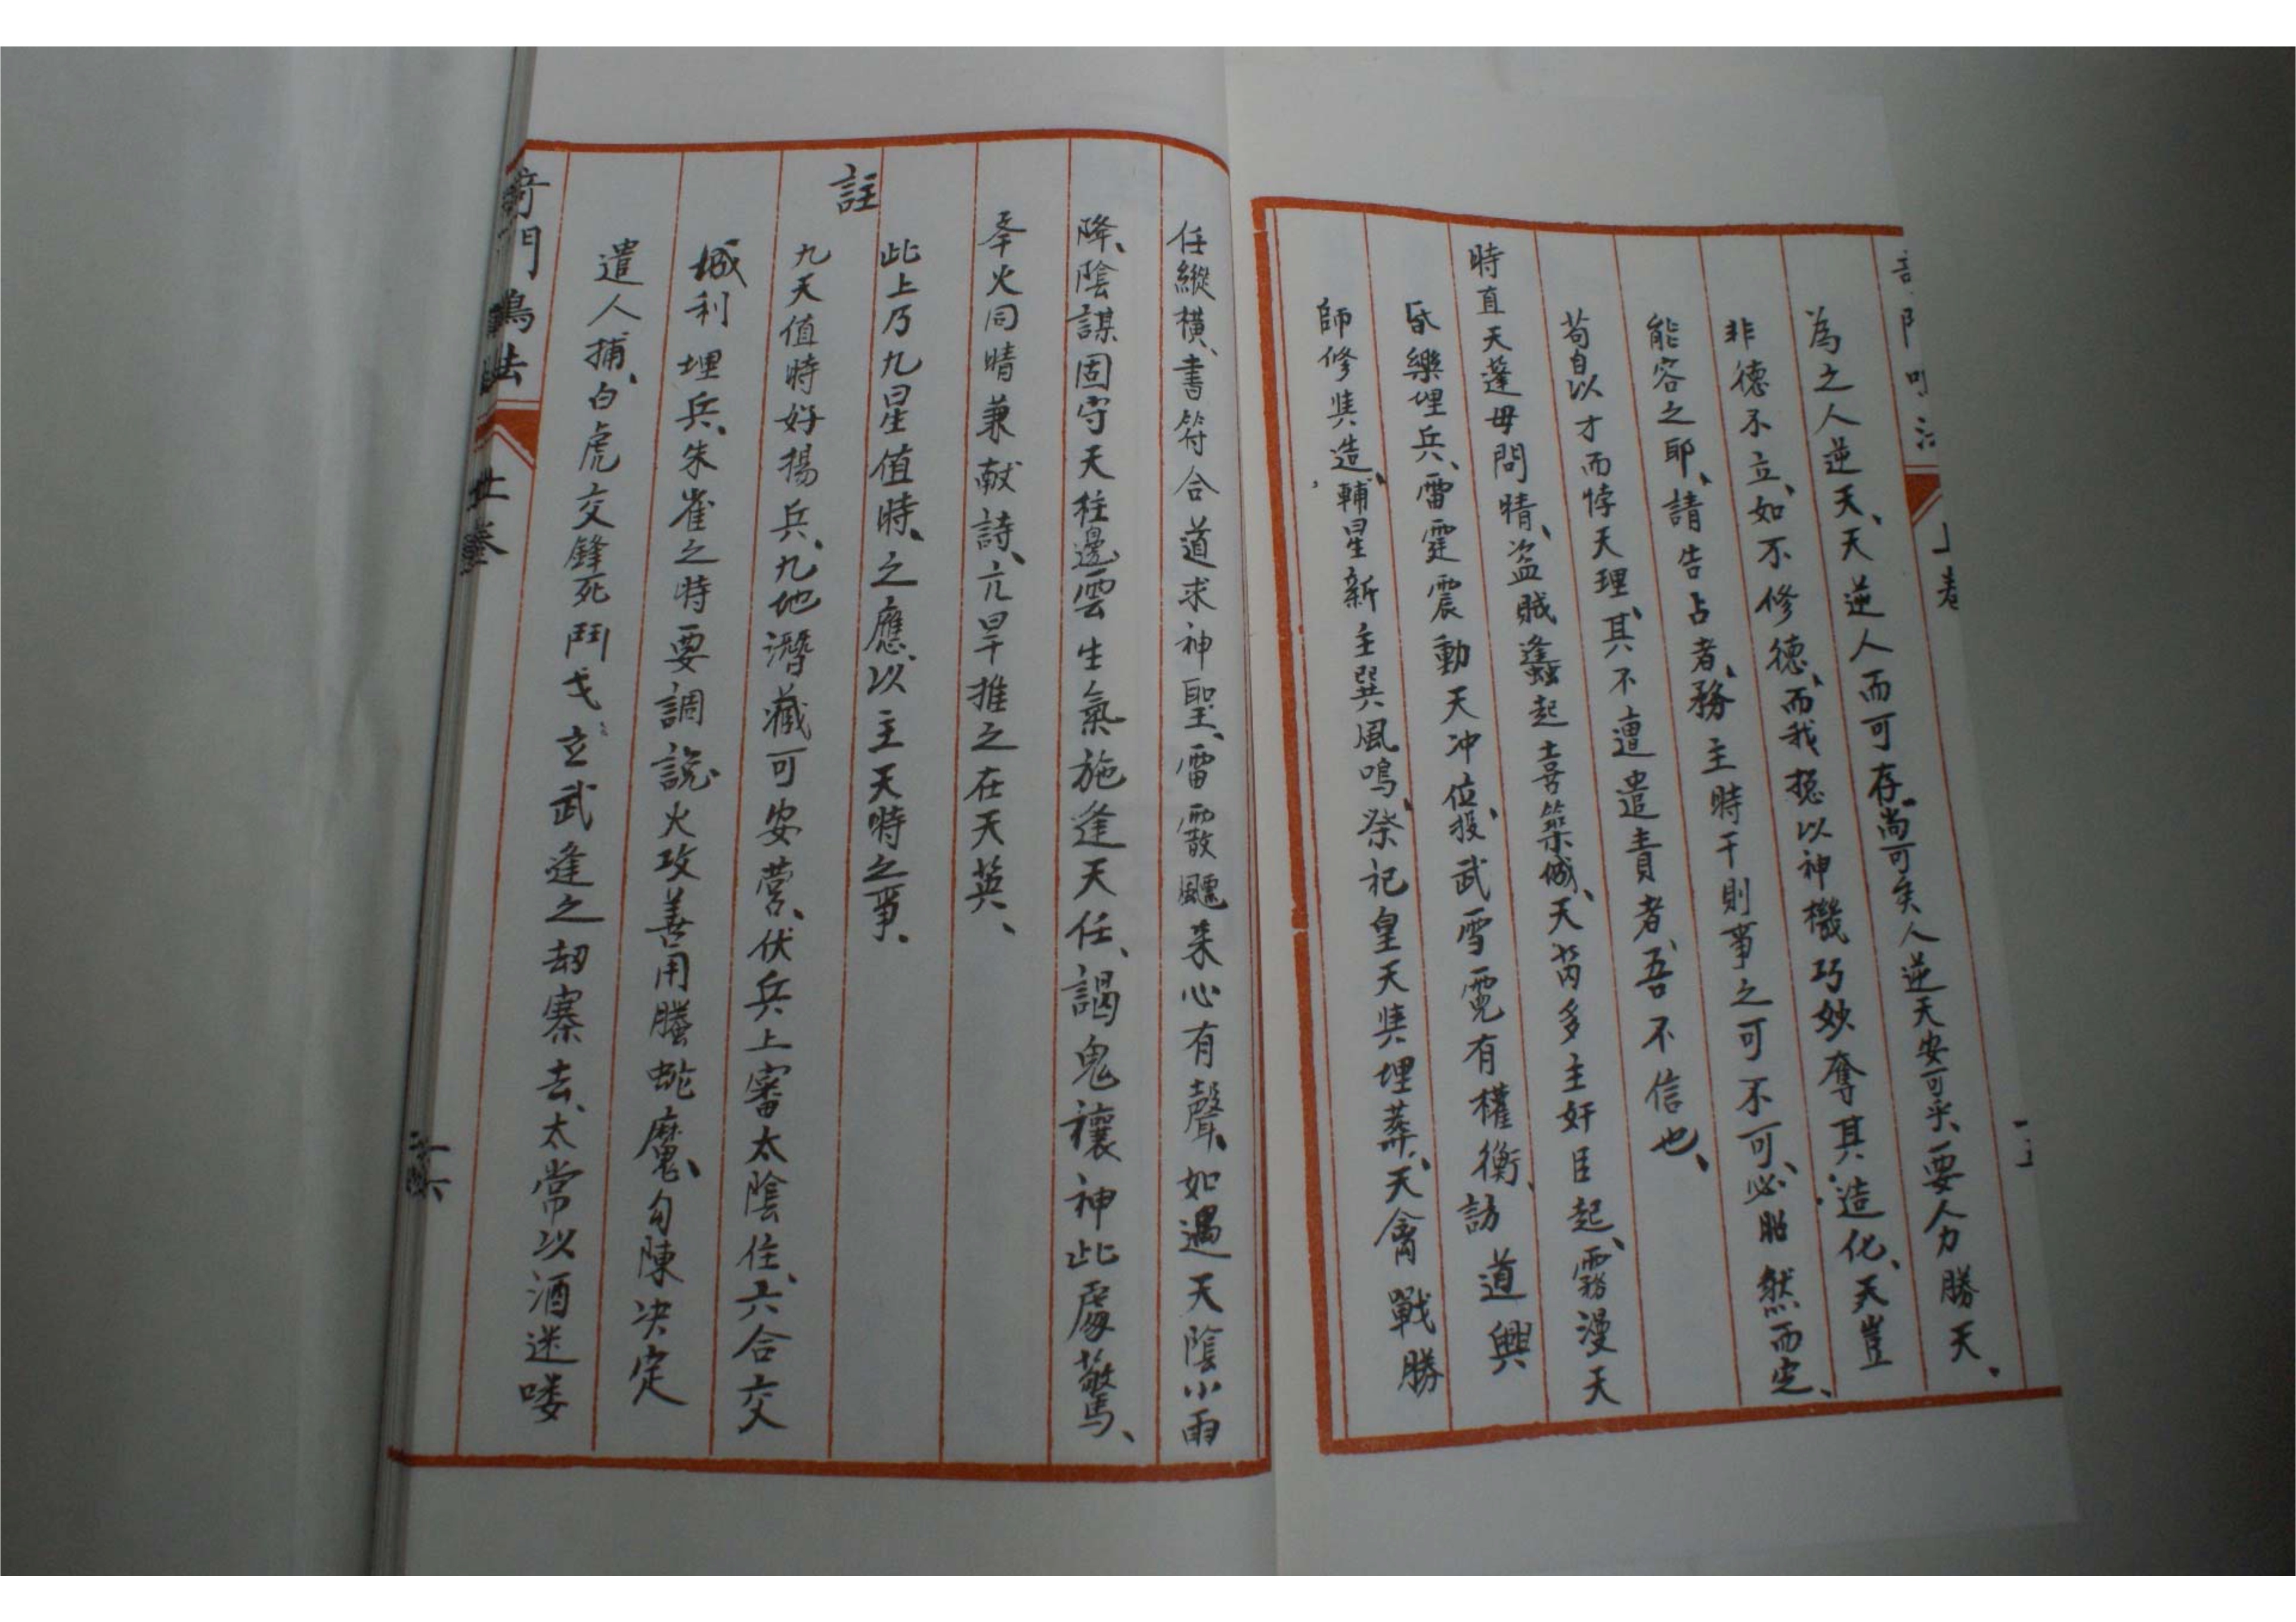 為之人逆天、天逆人而可存、尚可矣人逆天安可乎、要人力勝天、
非德不立、如不修德、而我挖以神機巧妙奪其造化、天豈
能容之耶、請告占者、務主時干則事之可不可、必昭然而定、
苟自以才而悖天理、其不遭遣責者、吾不信也、
時直天蓬毋問晴、盗賊蠭起喜築城、天芮多主奸臣起、霧漫天
昏樂埋兵、雷霆震動天冲位、投武雪霓有權衡、訪道興
師修其造、輔星新主巽風鳴、祭祀皇天其埋葬、天禽戰勝
任縱橫、書符合道求神聖、雷霰飄来心有聲、如遇天陰小雨
降、陰謀固守天柱邊雲生氣施逢天任、謁鬼禳神此處驚、
举火同晴兼献詩、亢旱推之在天英、
註
此上乃九星值時、之應、以主天時之事、
九天值時好揚兵、九地潛藏可安营、伏兵上審太陰住、六合交
城利埋兵、朱雀之時要調説火攻善用螣蛇魔、勾陳决定
遣人捕、白虎交鋒死鬥戈玄武逢之刼寨去、太常以酒迷喽
奇門鳴法
上卷